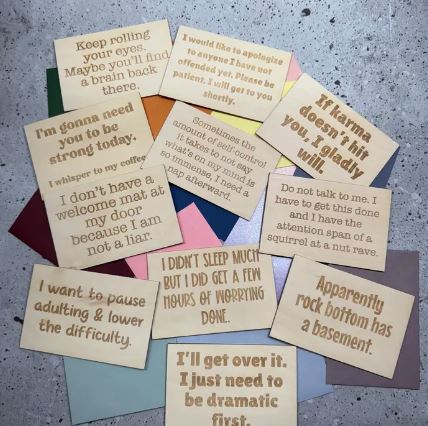 Keep rolling
your eyes.
Maybe you'll find
a brain back
there.
I would like to apologize
to anyone I have not
offended yet. Please be
patient. I will get to you
shortly.
If karma
doesn't hit
you, I gladly
will.
I'm gonna need
you to be
strong today.
I whisper to my coffee
Sometimes the
amount of self-control
it takes to not say
what's on my mind is
so immense, I need a
nap afterward.
I don't have a
welcome mat at
my door
because I am
not a liar.
Do not talk to me. I
have to get this done
and I have the
attention span of a
squirrel at a nut rave.
I DIDN'T SLEEP MUCH
BUT I DID GET A FEW
HOURS OF WORRYING
DONE.
I want to pause
adulting & lower
the difficulty.
Apparently
rock bottom has
a basement.
I'll get over it.
I just need to
be dramatic
first.